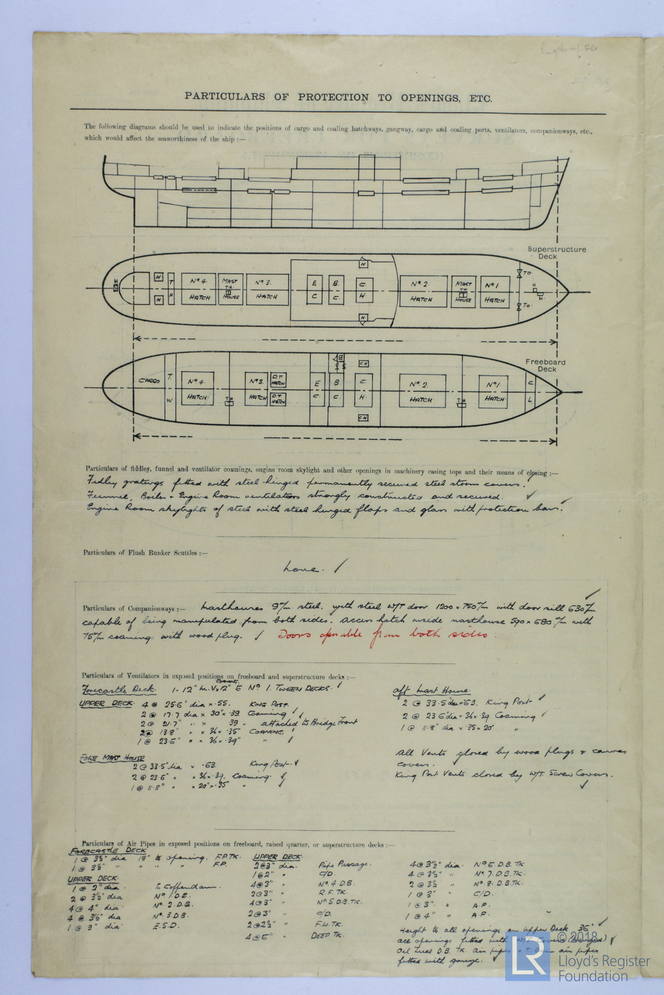 PARTICULARS OF PROTECTION TO OPENINGS, ETC.
The following diagrams should be used to indicate the positions of cargo and coaling hatchways, gangway, cargo and coaling ports, ventilators, companionways, etc.,
which would affect the seaworthiness of the ship :—
Superstructure
Deck
Nº 4 HATCH
MAST HOUSE
Nº 3 HATCH
E C
B C
C H
Nº 2 HATCH
MAST HOUSE
Nº 1 HATCH
Freeboard
Deck
CARGO
T W
Nº 4 HATCH
Nº 3 HATCH
D.T. HATCH
D.T. HATCH
E C
B C
C H
Nº 2 HATCH
Nº 1 HATCH
C L
Particulars of fiddley, funnel and ventilator coamings, engine room skylight and other openings in machinery casing tops and their means of closing :—
Fidley gratings fitted with steel hinged permanently secured steel storm covers.
Funnel, Boiler & Engine Room ventilators strongly constructed and secured.
Engine Room skylights of steel with steel hinged flaps and glass with protection bars.
Particulars of Flush Bunker Scuttles :—
None.
Particulars of Companionways :— Masthouses 9m/m steel, with steel W/T door 1200 x 750m/m with door sill 630m/m
capable of being manipulated from both sides. Access hatch inside masthouse 590 x 680m/m with
75m/m coaming with wood plug. Doors openable from both sides.
Particulars of Ventilators in exposed positions on freeboard and superstructure decks :—
Forecastle Deck. 1 - 12" to Nº 1. TWEEN DECKS.
UPPER DECK. 4 @ 25.6" dia x .55. KING POST.
2 @ 17.7 dia x 30" x .39 Coaming
2 @ 21.7" 39 - attached to Bridge Front
2 @ 13.8" x 36 x .35" COAMING.
1 @ 23.6" x 36 x .39"
FORE MAST HOUSE
2 @ 33.5 dia x .63. King Post
2 @ 23.6" x 36 x .39 Coaming.
1 @ 5.8" x 20" x .35"
Aft Mast House.
2 @ 33.5 dia x .63. King Post
2 @ 23.6 dia x 36 x .39 Coaming
1 @ 5.8" dia x .35 x 20"
All Vents closed by wood plugs & canvas
covers.
King Post Vents closed by W/T Screw Covers.
Particulars of Air Pipes in exposed positions on freeboard, raised quarter, or superstructure decks :—
FORECASTLE DECK
1 @ 3½" dia 18" to opening. F.P.TK.
1 @ 3½" " " " F.P.
UPPER DECK
1 @ 2" dia Cofferdam.
2 @ 3½" dia Nº 1 D.B.
4 @ 4" dia Nº 2. D.B.
4 @ 3½" dia Nº 3. D.B.
1 @ 3" dia E.S.D.
UPPER DECK
2 @ 3" dia. Pipe Passage.
1 @ 2" " C/D.
4 @ 3" " Nº 4. D.B.
2 @ 3" " R.F. TK.
4 @ 3" " Nº 5 D.B. TK.
2 @ 3" " C/D.
2 @ 2½" " F.W. TK.
4 @ 5" " DEEP TK.
4 @ 3½" dia. Nº 6. D.B. TK.
4 @ 3½" " Nº 7. D.B. TK.
2 @ 3½ " Nº 8. D.B. TK.
1 @ 3" " C/D.
1 @ 3" " A.P.
1 @ 4" " A.P.
Height to all openings on Upper Deck 36"
All openings fitted with covers (hinged)
Oil Fuel D.B. TK air pipes air pipes
fitted with gauze.
© 2018
LR
Lloyd's Register
Foundation